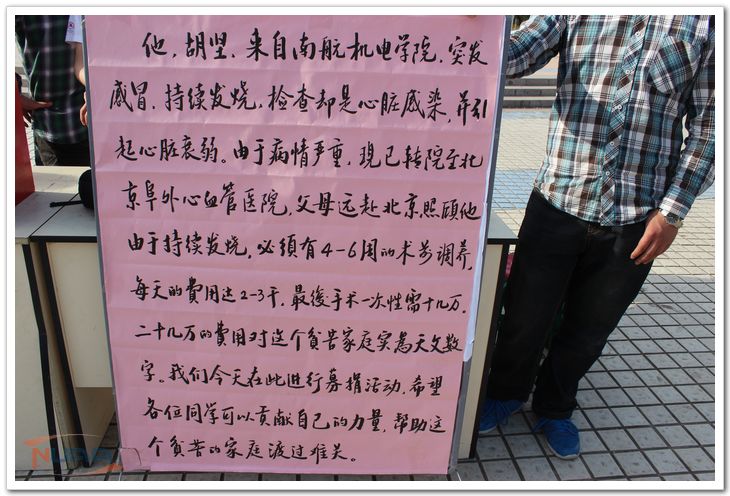 他，胡坚，来自南航机电学院，突发
感冒，持续发烧，检查却是心脏感染，并引
起心脏衰弱。由于病情严重，现已转院至北
京阜外心血管医院，父母远赴北京照顾他
由于持续发烧，必须有4-6周的术前调养，
每天的費用达2-3千，最後手术一次性需十几万，
二十几万的费用对这个貧苦家庭实為天文数
字。我们今天在此进行募捐活动，希望
各位同学可以贡献自己的力量，幫助这
个貧苦的家庭渡过难关。